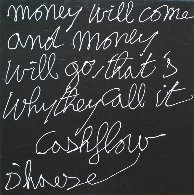 money will come
and money
will go, that's
why they call it
cashflow